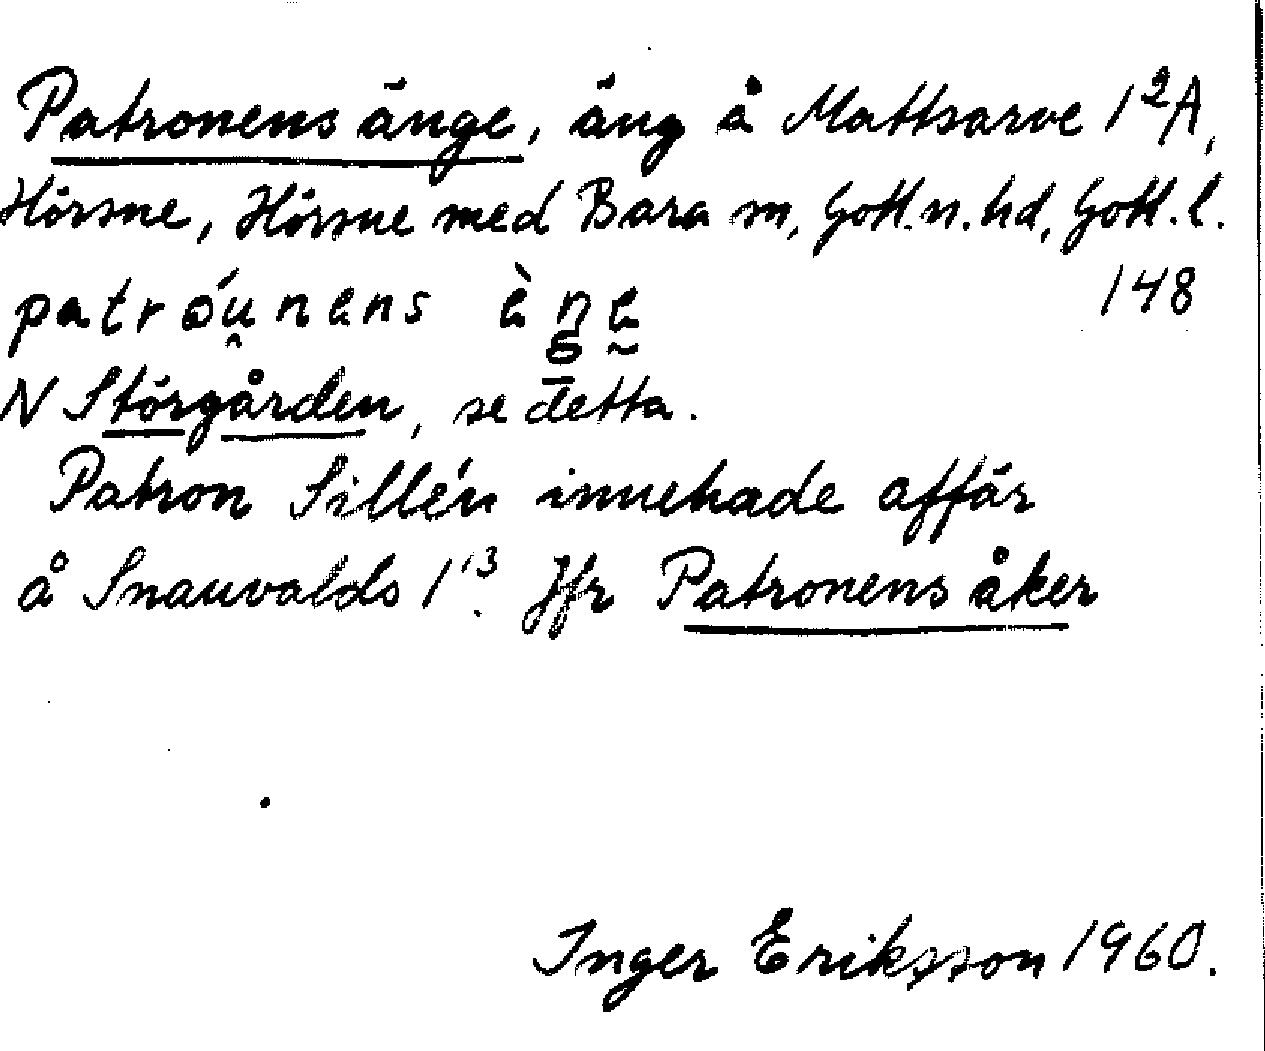 Patronens änge, äng å Mattsarve 1²A,
Hörsne, Hörsne med Bara sn, Gotl. n. hd, Gotl. l.
patróu̯nens èŋe̯ 148
N Störgården, se detta.
Patron Sillén innehade affär
å Snauvalds 1¹³. Jfr Patronens åker
Inger Eriksson 1960.